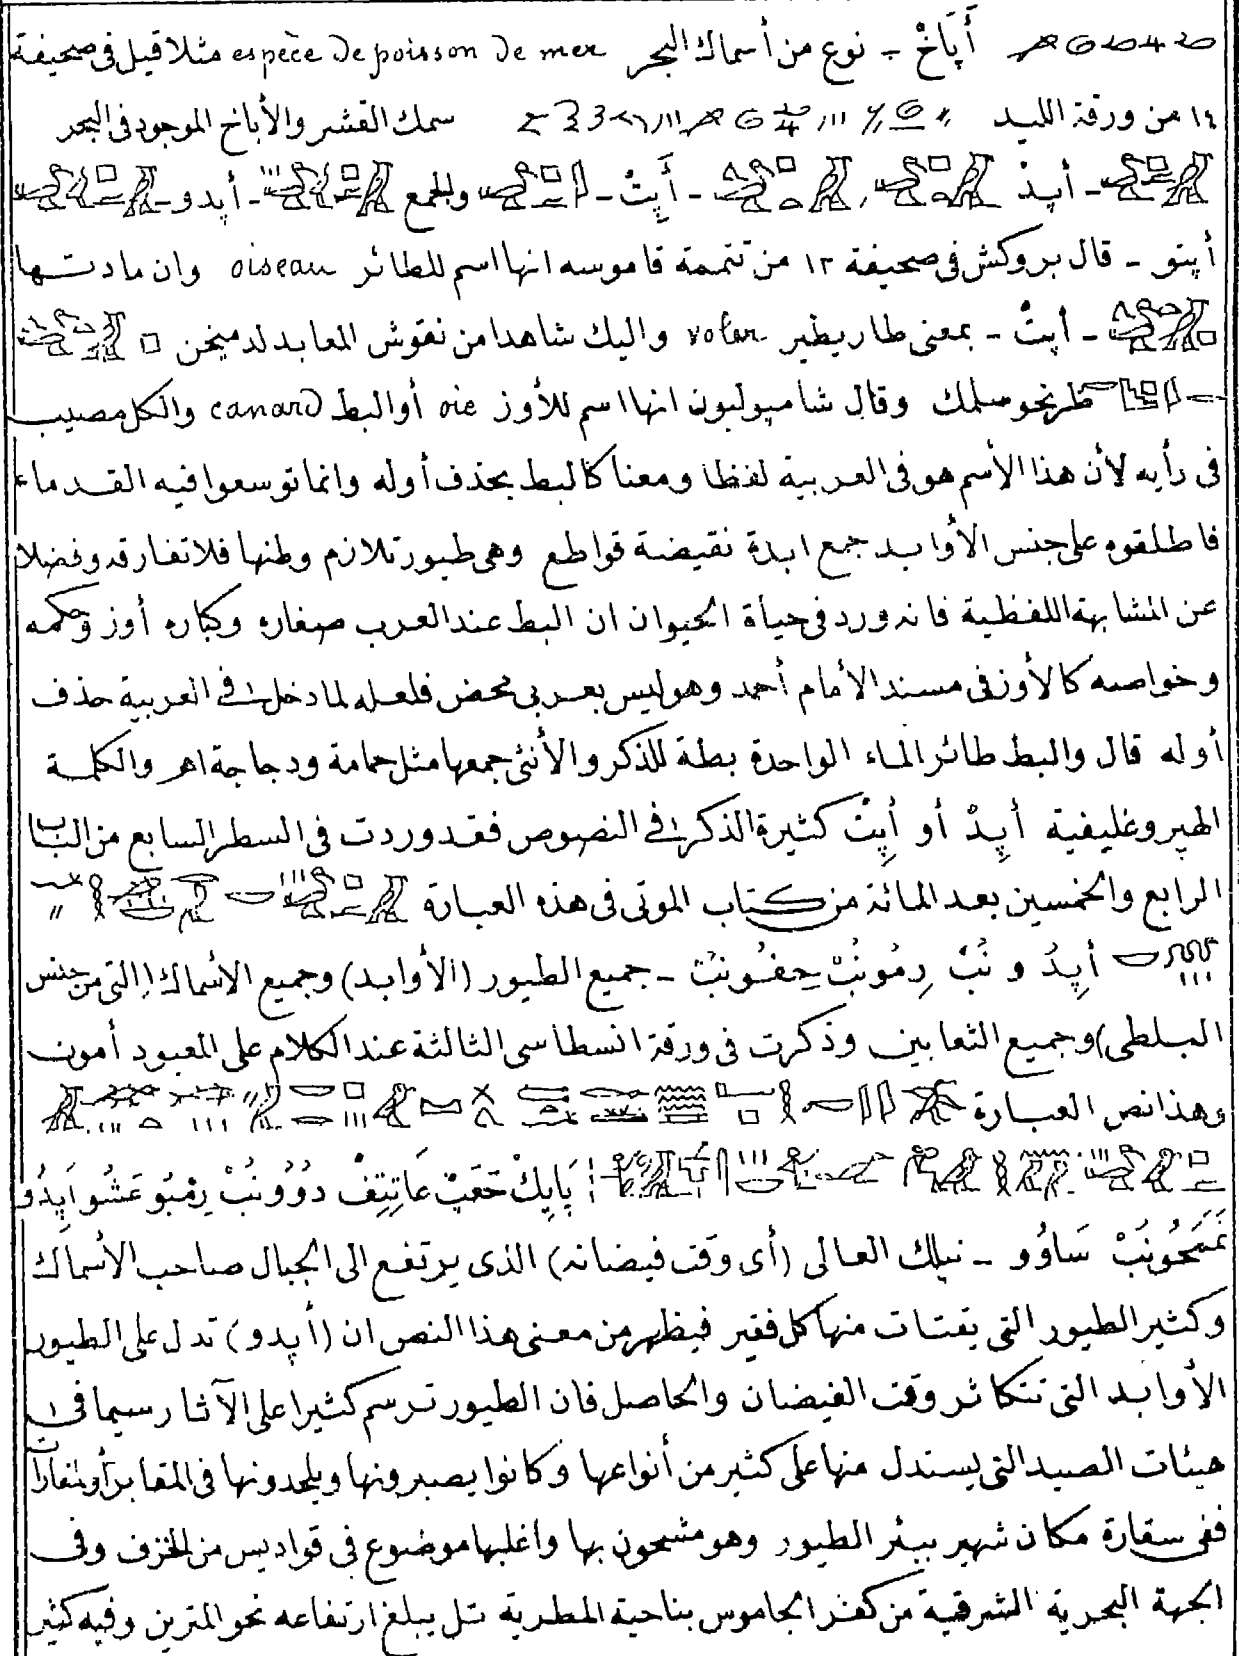 أَپَاخْ - نوع من أسماك البحر espèce de poisson de mer مثلا قيل فى صحيفة
١٤ من ورقة الليد سمك القشر والأباخ الموجود فى البحر
- أپدْ - أَپِتْ - وللجمع - أپدو -
أپتو - قال بروكش فى صحيفة ١٢ من تتمة قاموسه انها اسم للطائر oiseau وان مادتها
- أپتْ - بمعنى طار يطير voler واليك شاهدا من نقوش المعابد لدميخن
طر نحو سلمك وقال شامبوليون انها اسم للأوز oie أو البط canard والكل مصيب
فى رأيه لأن هذا الأسم هو فى العربية لفظا ومعنا كالبط بحذف أوله وانما توسعوا فيه القدماء
فاطلقوه على جنس الأوابد جمع ابدة نقيضة قواطع وهى طيور تلازم وطنها فلا تفارقه وفضلا
عن المشابهة اللفظية فانه ورد فى حياة الحيوان ان البط عند العرب صغاره وكباره أوز وحكمه
وخواصه كالأوز فى مسند الأمام أحمد وهو ليس بعربى محض فلعله لما دخل فى العربية حذف
أوله قال والبط طائر الماء الواحدة بطة للذكر والأنثى جمعها مثل حمامة ودجاجة اهر والكلمة
الهيروغليفية أپِدْ أو أپِتْ كثيرة الذكر فى النصوص فقد وردت فى السطر السابع من الباب
الرابع والخمسين بعد المائة من كتاب الموتى فى هذه العبارة
أپِدُ و نُبْ رِمُونُبْ حِفُونُبْ - جميع الطيور (الأوابد) وجميع الاسماك (التى من جنس
البلطى) وجميع الثعابين وذكرت فى ورقة انسطاسى الثالثة عند الكلام على المعبود أمون
وهذا نص العبارة
پَاپِكْ حَعَپْ عَاتِتِفْ دُوُونُبْ رِمْبُو عَشُو اَپِدُو
نَمَمْحُونِبْ سَاوُو - نيلك العالى (أى وقت فيضانه) الذى يرتفع الى الجبال صاحب الأسماك
وكثير الطيور التى يقتات منها كل فقير فيظهر من معنى هذا النص ان (أپدو) تدل على الطيور
الأوابد التى تتكاثر وقت الفيضان والحاصل فان الطيور ترسم كثيرا على الآثار سيما فى
هيئات الصيد التى يستدل منها على كثير من أنواعها وكانوا يصبرونها ويلحدونها فى المقابر أو المغارات
ففى سقارة مكان شهير ببئر الطيور وهو مشحون بها واغلبها موضوع فى قواديس من الخزف وفى
الجهة البحرية الشرقية من كفر الجاموس بناحية المطرية تل يبلغ ارتفاعه نحو المترين وفيه كثير